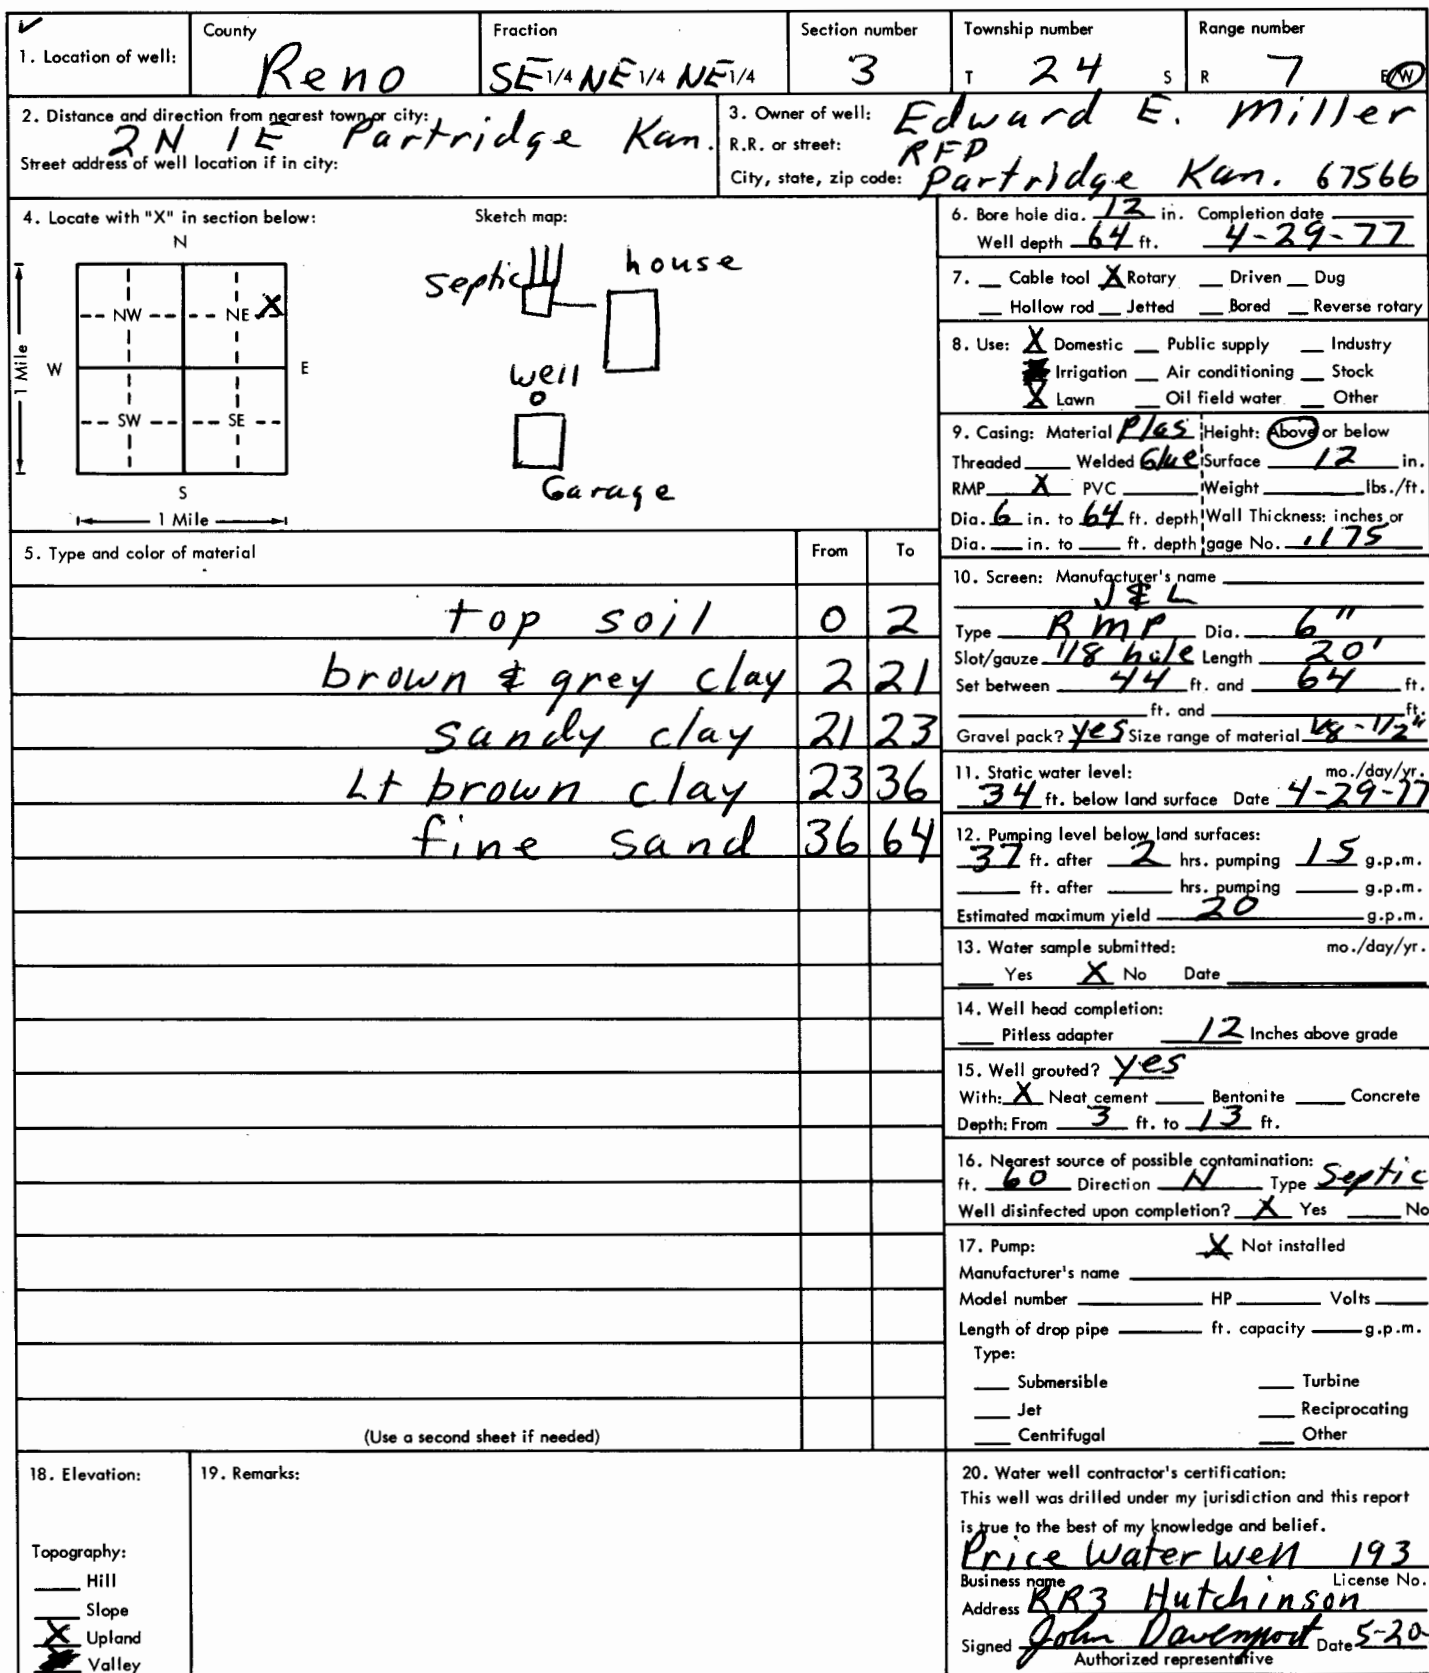 ✓
County Fraction Section number Township number Range number
1. Location of well: Reno SE 1/4 NE 1/4 NE 1/4 3 T 24 S R 7 E/W
2. Distance and direction from nearest town or city: 2N 1E Partridge Kan.
Street address of well location if in city:
3. Owner of well: Edward E. Miller
R.R. or street: RFD
City, state, zip code: Partridge Kan. 67566
4. Locate with "X" in section below:
N
NW NE X
W E
SW SE
S
1 Mile
1 Mile
Sketch map:
septic house
well
Garage
5. Type and color of material From To
top soil 0 2
brown & grey clay 2 21
sandy clay 21 23
Lt brown clay 23 36
fine sand 36 64
(Use a second sheet if needed)
6. Bore hole dia. 12 in. Completion date
Well depth 64 ft. 4-29-77
7. __ Cable tool X Rotary __ Driven __ Dug
__ Hollow rod __ Jetted __ Bored __ Reverse rotary
8. Use: X Domestic __ Public supply __ Industry
Irrigation __ Air conditioning __ Stock
X Lawn __ Oil field water __ Other
9. Casing: Material Plas Height: Above or below
Threaded __ Welded Glue Surface 12 in.
RMP X PVC __ Weight __ lbs./ft.
Dia. 6 in. to 64 ft. depth Wall Thickness: inches or
Dia. __ in. to __ ft. depth gage No. .1175
10. Screen: Manufacturer's name
J & L
Type RMP Dia. 6"
Slot/gauze 1/8 hole Length 20'
Set between 44 ft. and 64 ft.
__ ft. and __ ft.
Gravel pack? yes Size range of material 1/8 - 1/2"
11. Static water level: mo./day/yr.
34 ft. below land surface Date 4-29-77
12. Pumping level below land surfaces:
37 ft. after 2 hrs. pumping 15 g.p.m.
__ ft. after __ hrs. pumping __ g.p.m.
Estimated maximum yield 20 g.p.m.
13. Water sample submitted: mo./day/yr.
__ Yes X No Date __
14. Well head completion:
__ Pitless adapter 12 Inches above grade
15. Well grouted? yes
With: X Neat cement __ Bentonite __ Concrete
Depth: From 3 ft. to 13 ft.
16. Nearest source of possible contamination:
ft. 60 Direction N Type Septic
Well disinfected upon completion? X Yes __ No
17. Pump: X Not installed
Manufacturer's name __
Model number __ HP __ Volts __
Length of drop pipe __ ft. capacity __ g.p.m.
Type:
__ Submersible __ Turbine
__ Jet __ Reciprocating
__ Centrifugal __ Other
18. Elevation:
Topography:
__ Hill
__ Slope
X Upland
Valley
19. Remarks:
20. Water well contractor's certification:
This well was drilled under my jurisdiction and this report
is true to the best of my knowledge and belief.
Price Water Well 193
Business name License No.
Address RR3 Hutchinson
Signed John Davenport Date 5-20-
Authorized representative